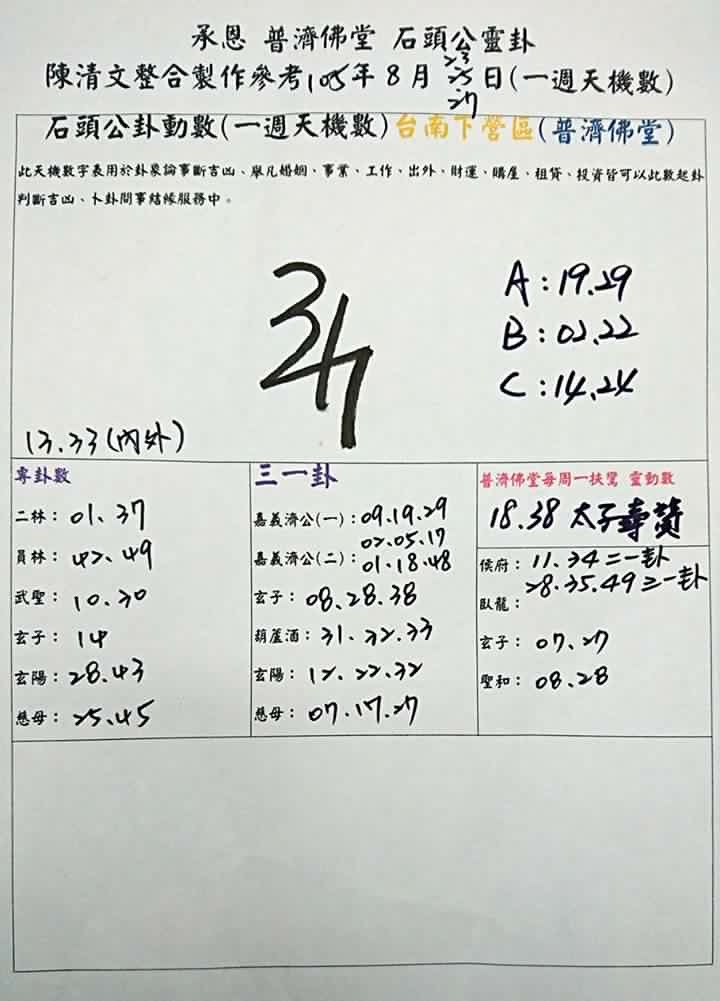 承恩 普濟佛堂 石頭公靈卦
陳清文整合製作參考105年8月23 25 27日(一週天機數)
石頭公卦動數(一週天機數)台南下營區(普濟佛堂)
此天機數字表用於卦象論事斷吉凶、舉凡婚姻、事業、工作、出外、財運、購屋、租貸、投資皆可以此數起卦
判斷吉凶、卜卦問事結緣服務中。
A:19.29
B:02.22
C:14.24
13.33(內外)
專卦數
二林:01.37
員林:42.49
武聖:10.30
玄子:14
玄陽:28.43
慈母:25.45
三一卦
嘉義濟公(一):09.19.29
02.05.17
嘉義濟公(二):01.18.48
玄子:08.28.38
葫蘆酒:31.32.33
玄陽:12.22.32
慈母:07.17.27
普濟佛堂每周一扶鸞 靈動數
18.38 太子壽贊
侯府:11.34二一卦
28.35.49三一卦
臥龍:
玄子:07.27
聖和:08.28